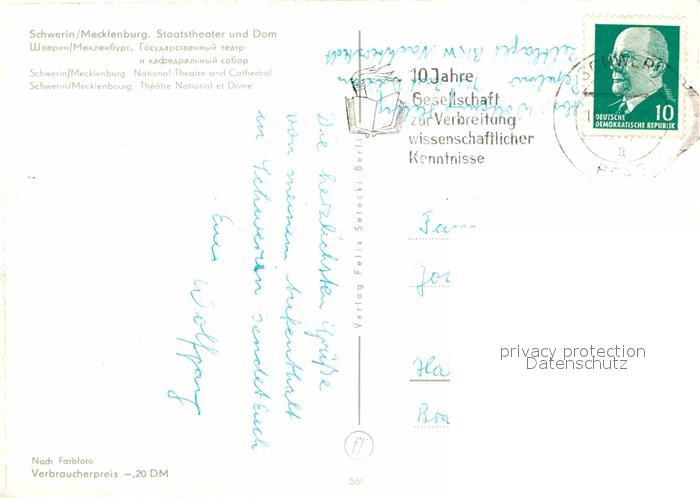 Schwerin/Mecklenburg. Staatstheater und Dom
Шверин/Мекленбург. Государственный театр
и кафедральный собор
Schwerin/Mecklenburg National Theatre and Cathedral
Schwerin/Mecklenbourg. Théâtre National et Dôme
10 Jahre
Gesellschaft
zur Verbreitung
wissenschaftlicher
Kenntnisse
DEUTSCHE
DEMOKRATISCHE REPUBLIK
10
SCHWERIN
a
Die herzlichsten Grüße
von meinem Aufenthalt
in Schwerin sendet Euch
Euer Wolfgang
Verlag Felix Setecki Berlin
Fam
Ha
privacy protection
Datenschutz
Nach Farbfoto
Verbraucherpreis –,20 DM
561